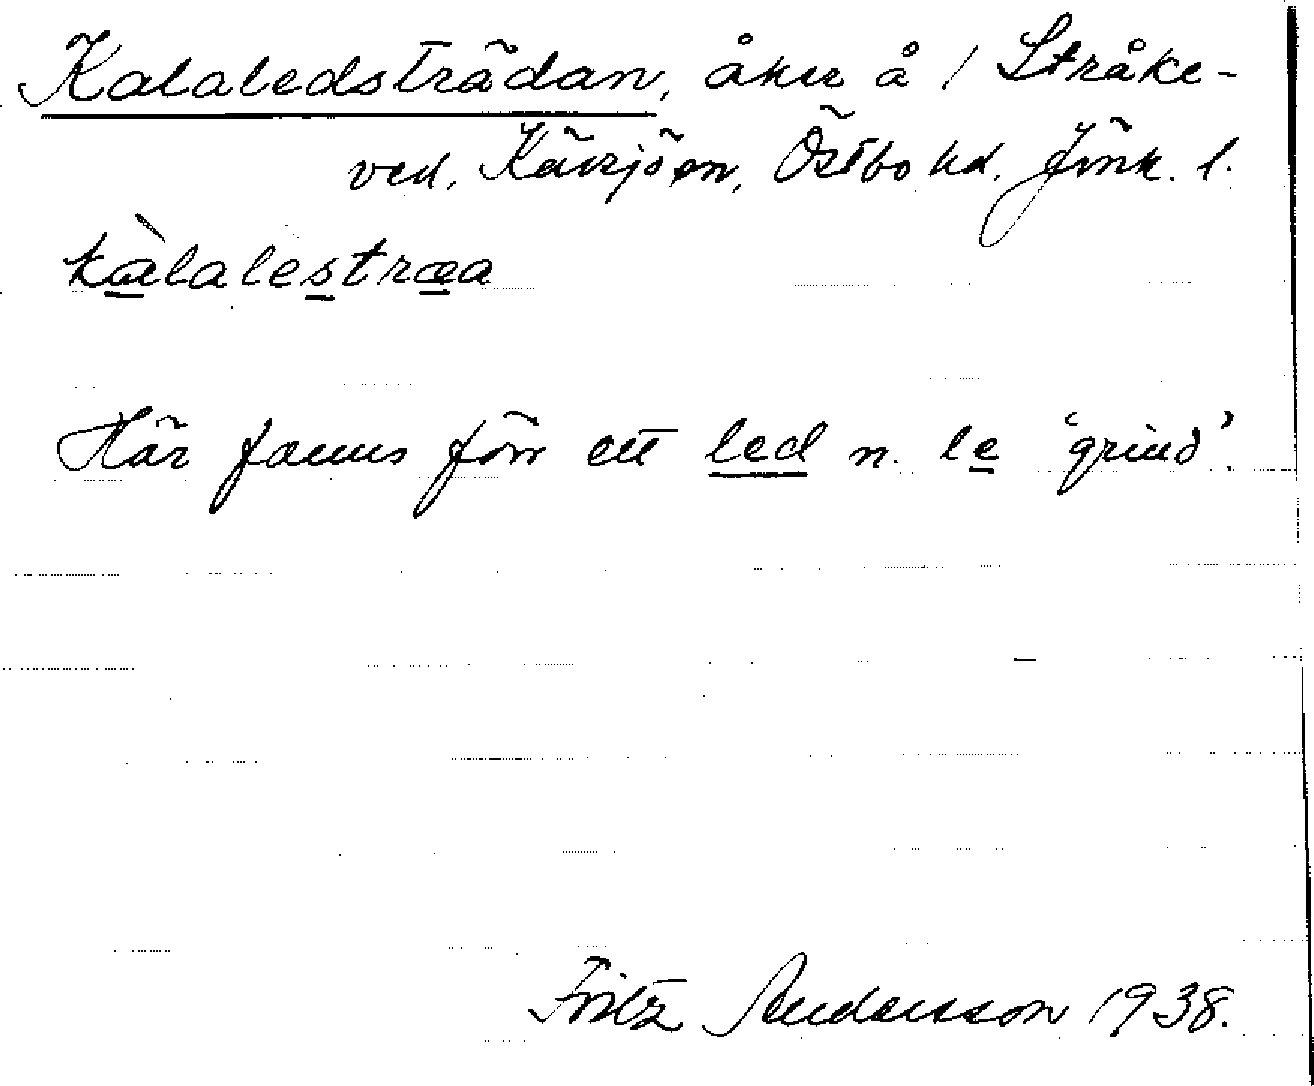 Kalaledsträdan, åker å / Stråke-
ved, Kävsjö sn, Östbo hd. Jönk. l.
kàlalestræa
Här fanns förr ett led n. le 'grind'.
Fritz Andersson 1938.